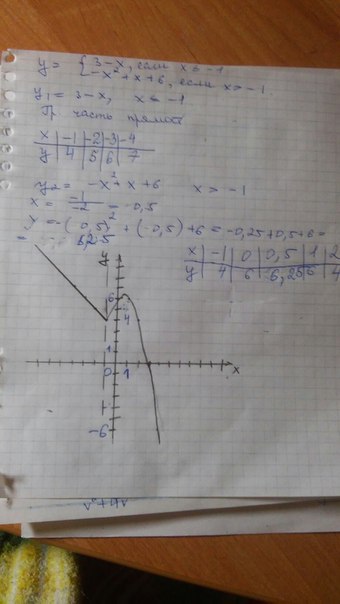 y = { 3-x, если x ≤ -1
-x² + x + 6, если x > -1
y₁ = 3-x, x ≤ -1
Гр. часть прямой
x | -1 | -2 | -3 | -4
y | 4 | 5 | 6 | 7
y₂ = -x² + x + 6 x > -1
x = -1/-2 = 0,5
(0,5)² + (-0,5) + 6 = -0,25 + 0,5 + 6 =
= 6,25
x | -1 | 0 | 0,5 | 1 | 2
y | 4 | 6 | 6,25 | 6 | 4
y
6
4
1
0 1 x
-6